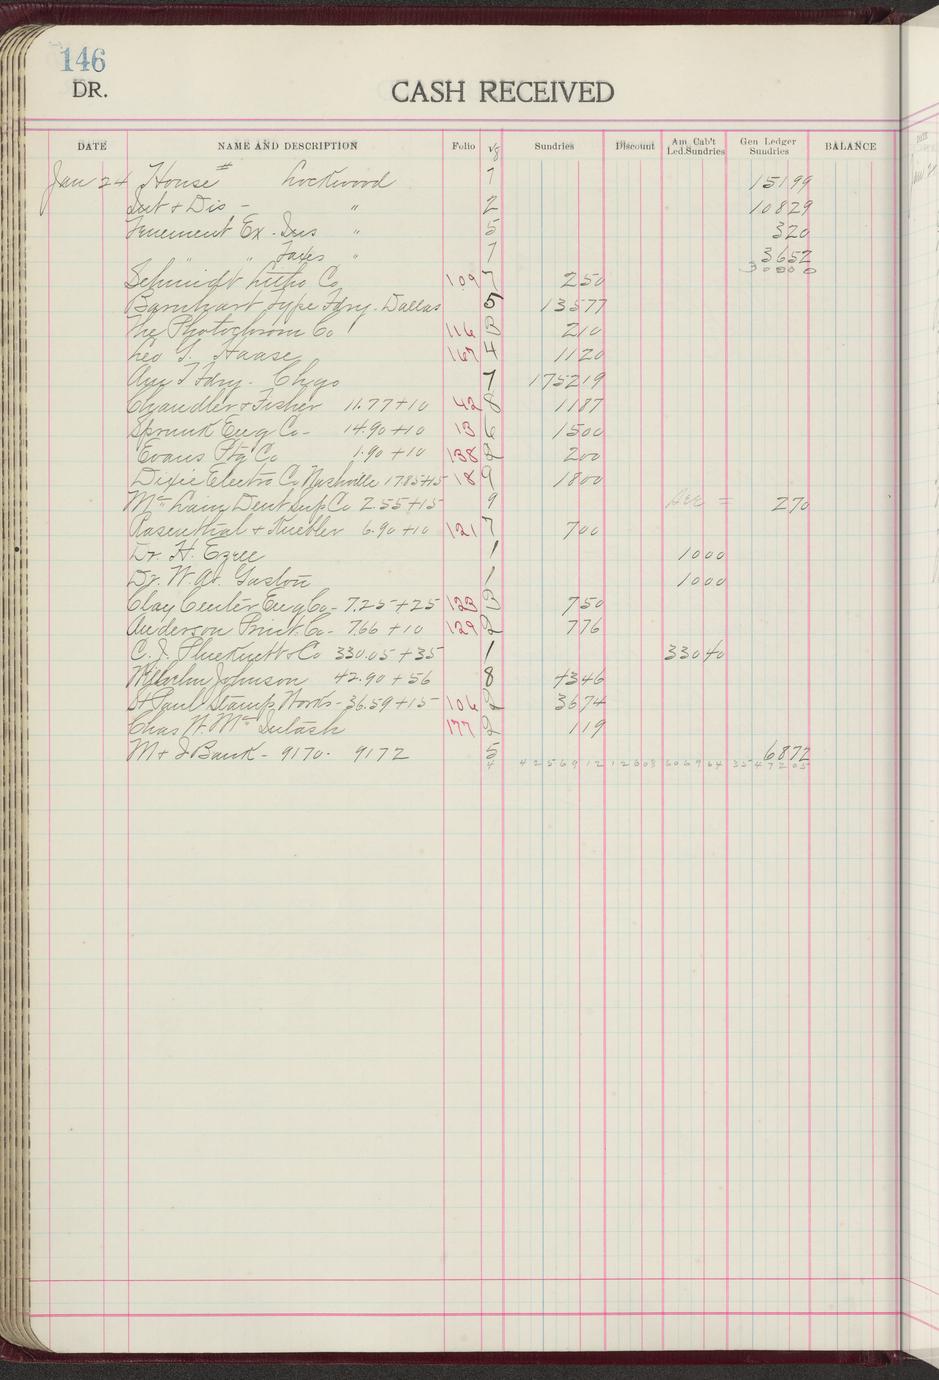 146
DR.
CASH RECEIVED
DATE NAME AND DESCRIPTION Folio √8 Sundries Discount Am Cab't Led.Sundries Gen Ledger Sundries BALANCE
Jan 24 House # Lockwood 7 15199
Int + Dis - " 2 10829
Tenement Ex - Ins " 5 320
" " Taxes " 7 3652
30000
Schmidt Litho Co 109 7 250
Barnhart Type Fdry. Dallas 5 13577
The Photochrom Co 116 3 210
Leo G. Haase 167 4 1120
Am T Fdry. Chgo 7 175219
Chandler + Fisher 11.77+10 42 8 1187
Sprunk Eng Co - 14.90+10 13 6 1500
Evans Ptg Co 1.90+10 138 2 200
Dixie Electro Co Nashville 1785+15 18 9 1800
Mc Lain Dent Sup Co 2.55+15 9 270
Rosenthal + Kuebler 6.90+10 121 7 700
Dr. H. Ezree 1 1000
Dr. W. A. Gaston 1 1000
Clay Center Eng Co - 7.25+25 123 3 750
Anderson Print. Co - 7.66+10 129 2 776
C. J. Plucknett & Co 330.05+35 1 33040
Johnson 42.90+56 8 4346
St Paul Stamp Works - 36.59+15 106 2 3674
Chas H. Mc Intosh 177 2 119
M + I Bank - 9170. 9172 5 6872
4 42569 12 12608 506964 35472 05